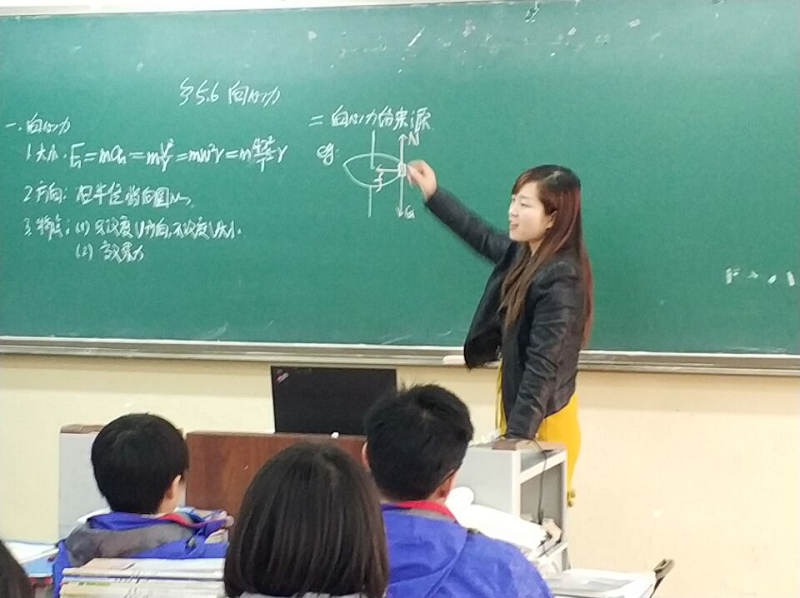 §5.6 向心力
一、向心力
1.大小: Fn=man=mv²/r=mω²r=m4π²/T²r
2.方向: 沿半径指向圆心
3.特点: (1) 只改变V方向,不改变V大小.
(2) 效果力
二 向心力的来源
eg:
N
f
G